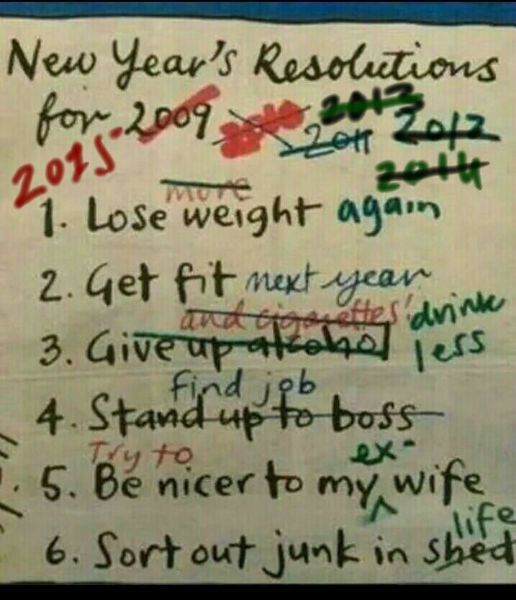 New Year's Resolutions
for 2009 2010 2011 2013 2012
2015 2014
more
1. Lose weight again
2. Get fit next year
and cigarettes! drink
3. Give up alcohol less
find job
4. Stand up to boss
Try to ex-
5. Be nicer to my wife
life
6. Sort out junk in shed